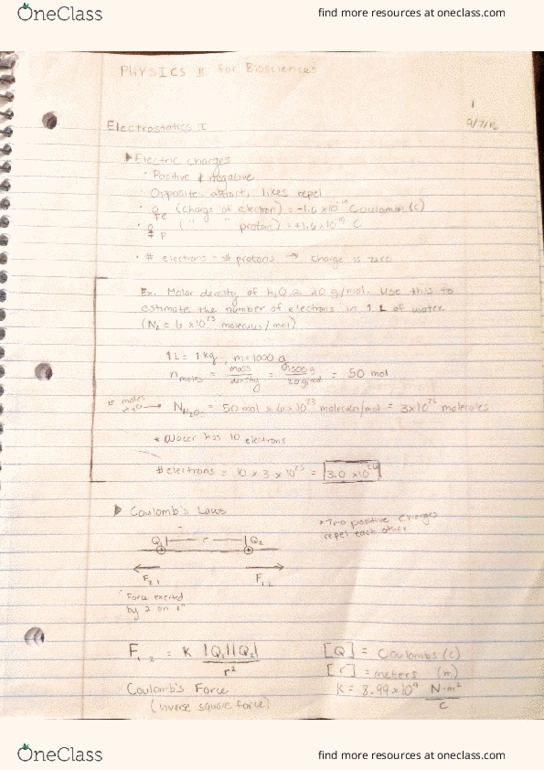 OneClass
find more resources at oneclass.com
PHYSICS II for Biosciences
1
9/7/16
Electrostatics I
▶ Electric charges
· Positive & negative
Opposites attract, likes repel
· q e (charge of electron) = -1.6 x 10 Coulombs (C)
· q p ( " " proton) = +1.6 x 10 C
· # electrons = # protons → charge is zero
Ex. Molar density of H2O ≈ 20 g/mol. Use this to
estimate the number of electrons in 1 L of water.
(N = 6 x 10^23 molecules/mol)
1 L = 1 kg, m = 1000 g
n moles = mass/density = 1000g/20g/mol = 50 mol
# moles H2O → N H2O = 50 mol x 6 x 10^23 molecules/mol = 3 x 10^25 molecules
* Water has 10 electrons
# electrons = 10 x 3 x 10^25 = 3.0 x 10
▶ Coulomb's Laws
* Two positive charges
repel each other
Q1 r Q2
F2,1 F1,2
"Force exerted
by 2 on 1"
F1,2 = K |Q1||Q2| / r²
[Q] = Coulombs (C)
[r] = meters (m)
K = 8.99 x 10^9 N·m²/C
Coulomb's Force
(inverse square force)
OneClass
find more resources at oneclass.com